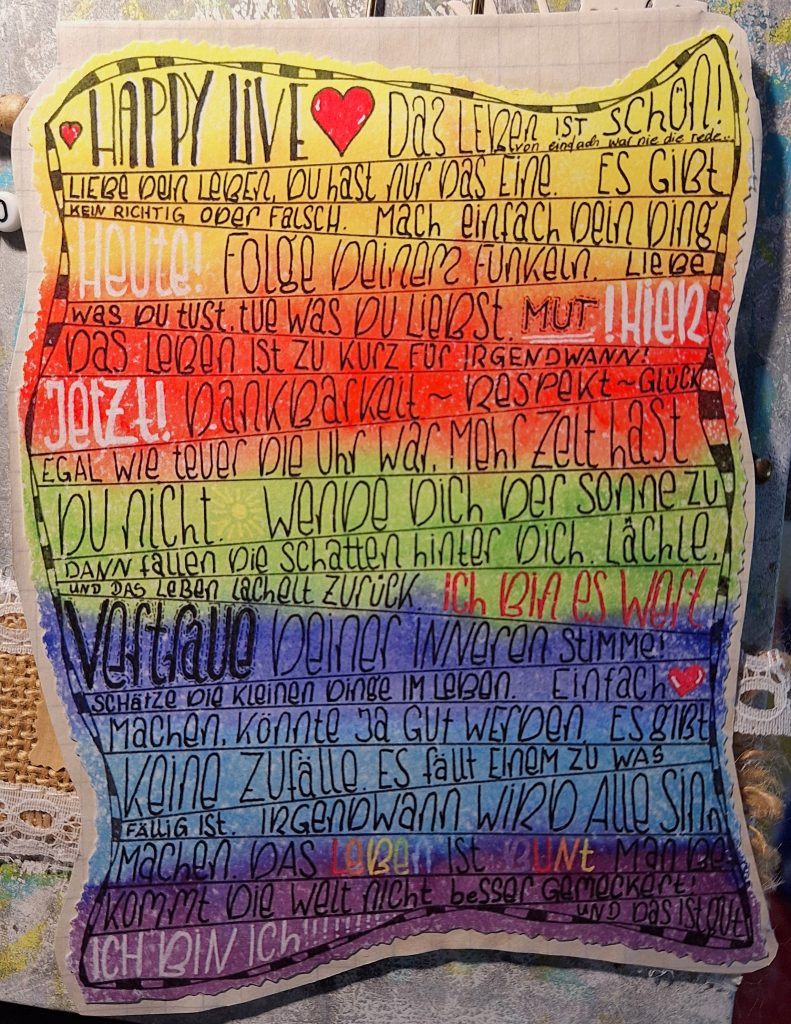 HAPPY LIVE DAS LEBEN IST SCHÖN!
von einfach war nie die rede...
LIEBE DEIN LEBEN, DU HAST NUR DAS EINE. ES GIBT
KEIN RICHTIG ODER FALSCH. MACH EINFACH DEIN DING
HEUTE! FOLGE DEINEM FUNKELN. LIEBE
WAS DU TUST, TUE WAS DU LIEBST. MUT! HIER
DAS LEBEN IST ZU KURZ FÜR IRGENDWANN!
JETZT! DANKBARKEIT ~ RESPEKT ~ GLÜCK
EGAL WIE TEUER DIE UHR WAR, MEHR ZEIT HAST
DU NICHT. WENDE DICH DER SONNE ZU
DANN FALLEN DIE SCHATTEN HINTER DICH. LÄCHLE,
UND DAS LEBEN LÄCHELT ZURÜCK. ICH BIN ES WERT
VERTRAUE DEINER INNEREN STIMME!
SCHÄTZE DIE KLEINEN DINGE IM LEBEN. EINFACH
MACHEN, KÖNNTE JA GUT WERDEN. ES GIBT
KEINE ZUFÄLLE. ES FÄLLT EINEM ZU WAS
FÄLLIG IST. IRGENDWANN WIRD ALLE SINN
MACHEN. DAS LEBEN IST BUNT MAN BE
KOMMT DIE WELT NICHT BESSER GEMECKERT!
UND DAS IST GUT
ICH BIN ICH!!!!!!!!